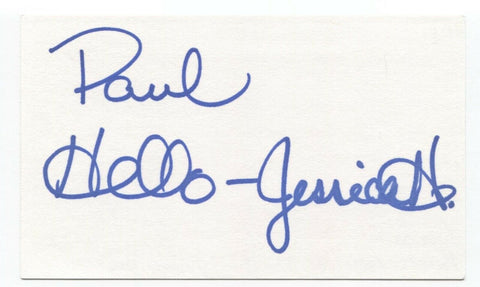 Paul
Hello - Jessica H.